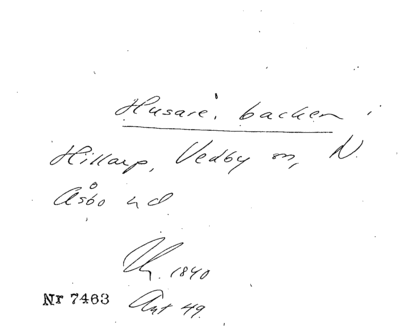 Husare, backen i
Hillarp, Vedby sn, N.
Åsbo hd
1840
Nr 7463 Ant 49.